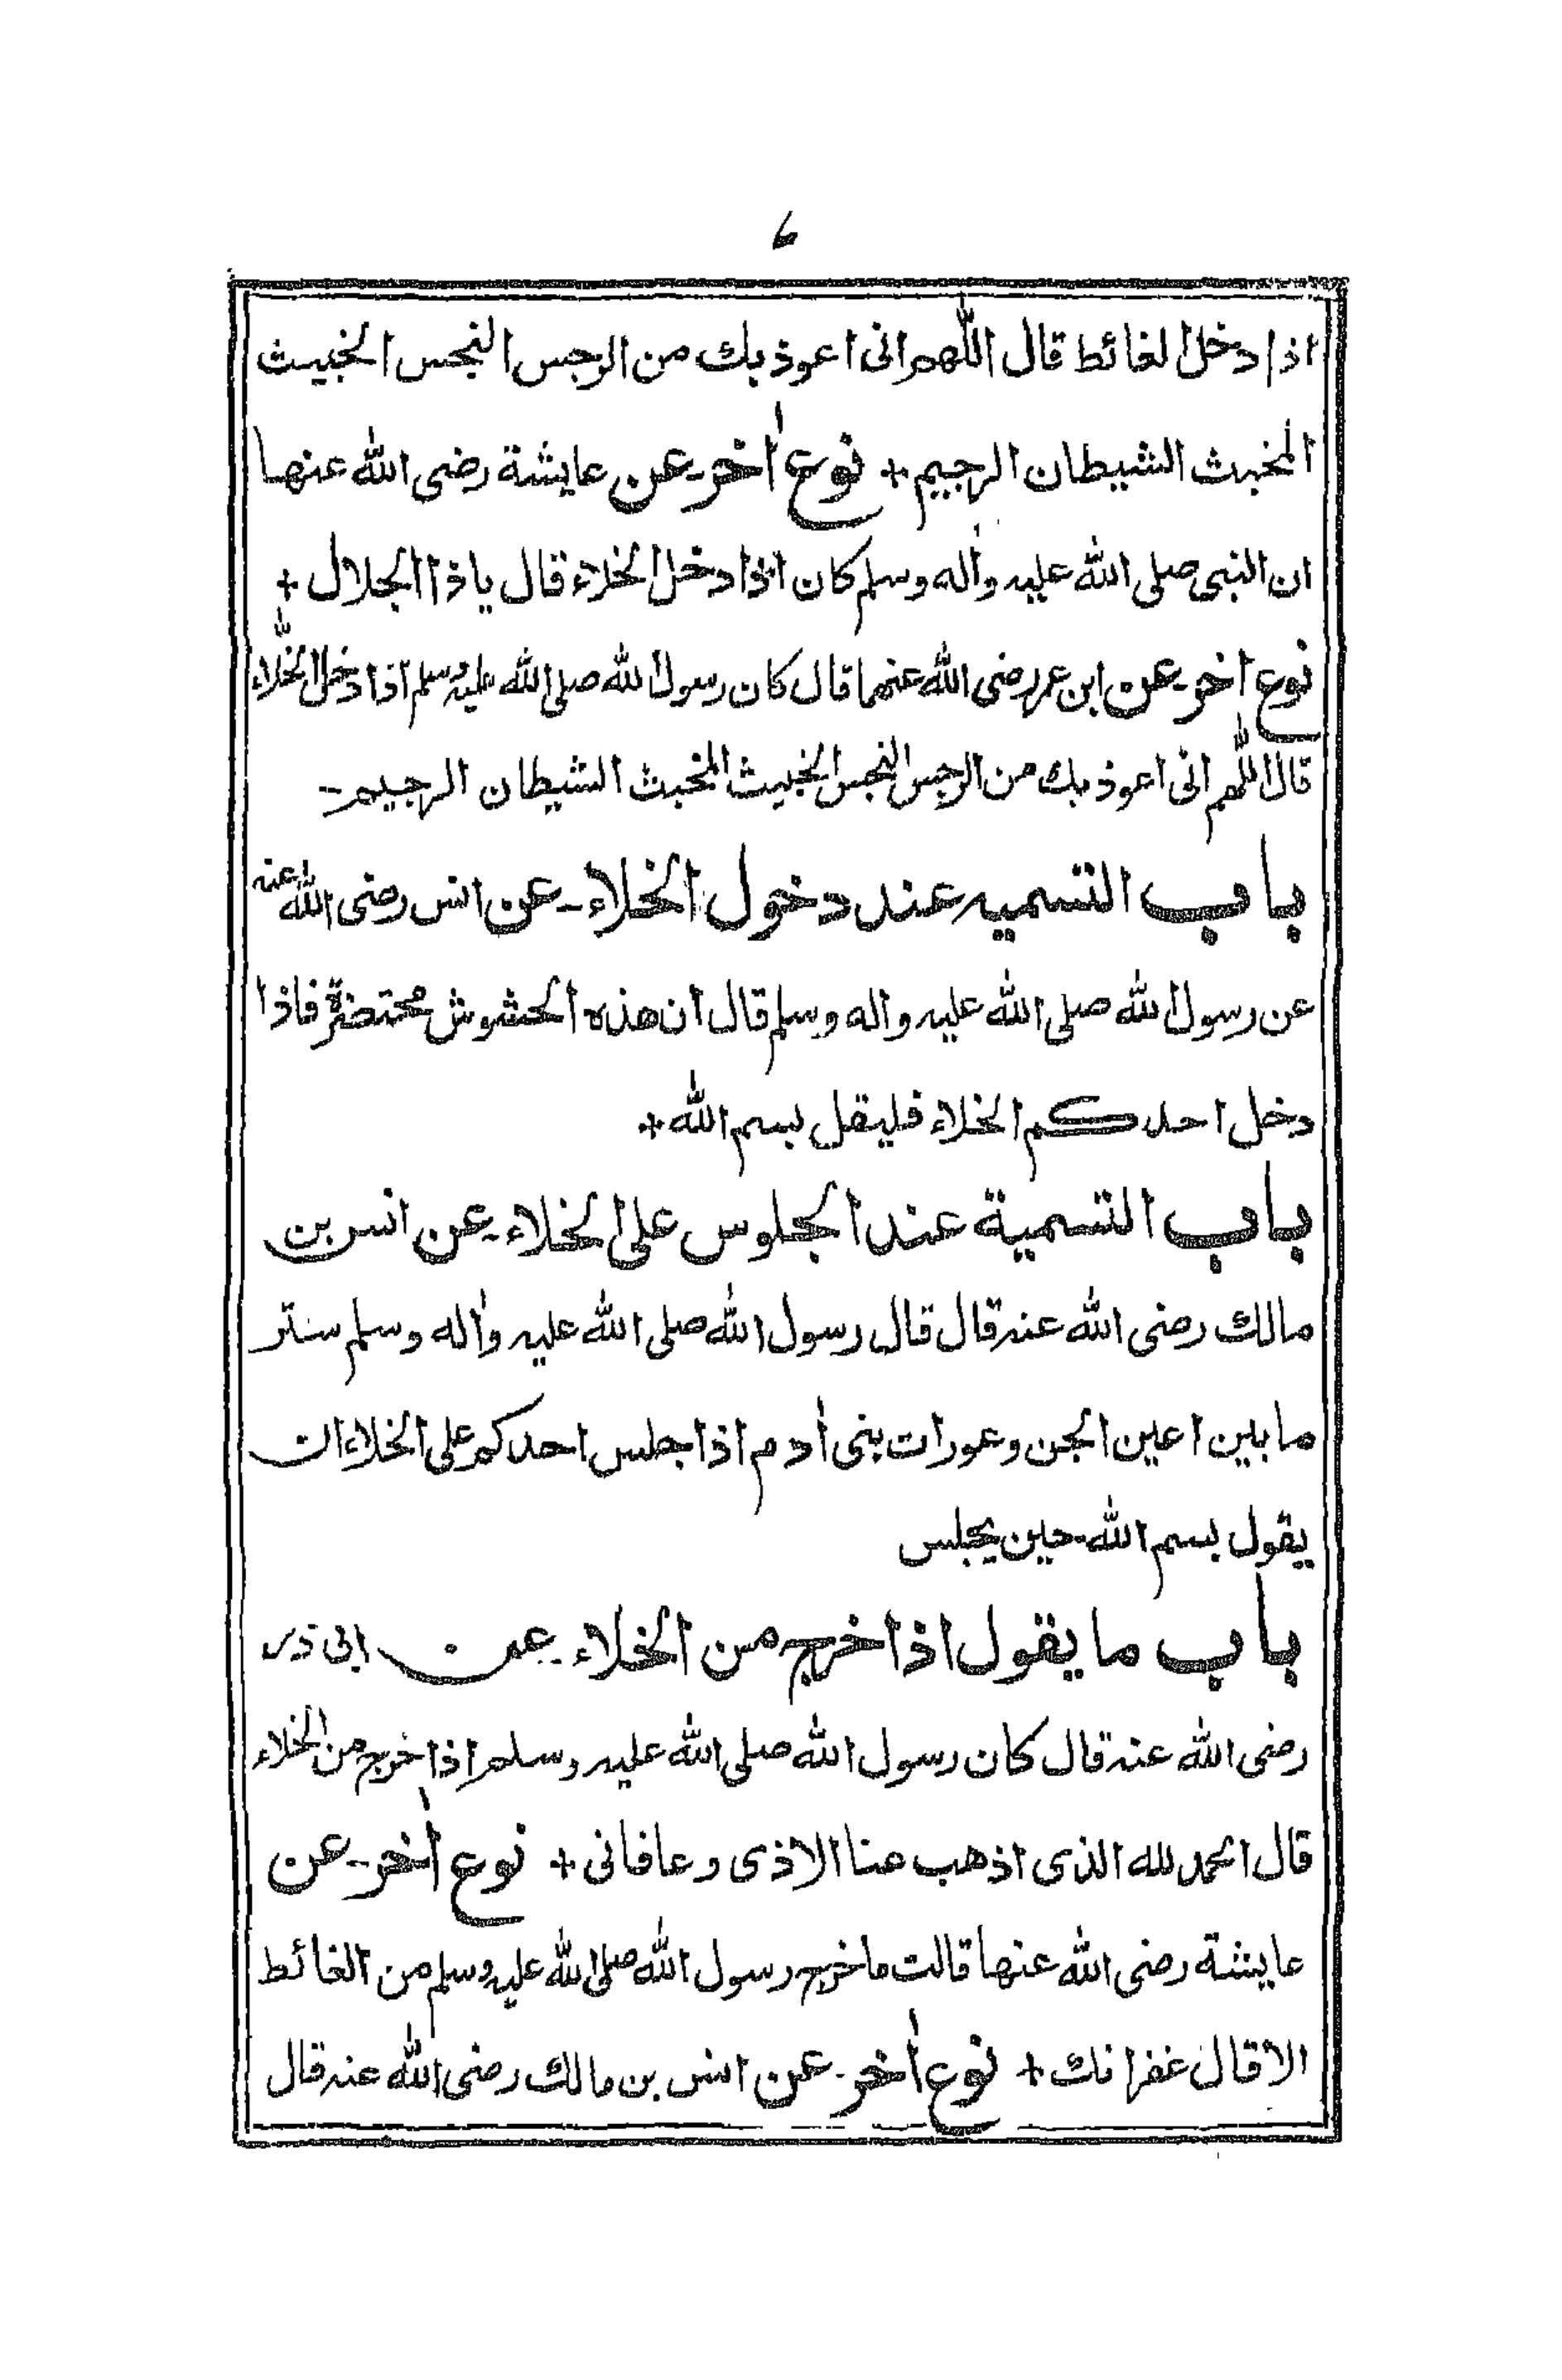 ۶
اذا دخل الغائط قال اللّٰهم انى اعوذ بك من الرجس النجس الخبيث
المخبث الشيطان الرجيم + نوع اٰخر- عن عايشة رضى الله عنها
ان النبى صلى الله عليه واٰله وسلم كان اذا دخل الخلاء قال ياذا الجلال +
نوع اٰخر- عن ابن عمر رضى الله عنهما قال كان رسول الله صلى الله عليه وسلم اذا دخل الخلاء
قال اللّٰهم انى اعوذ بك من الرجس النجس الخبيث المخبث الشيطان الرجيم-
باب التسميه عند دخول الخلاء- عن انس رضى الله عنه
عن رسول الله صلى الله عليه واله وسلم قال ان هذه الحشوش مُحتضرةٌ فاذا
دخل احدكم الخلاء فليقل بسم الله +
باب التسمية عند الجلوس على الخلاء- عن انس بن
مالك رضى الله عنه قال قال رسول الله صلى الله عليه واٰله وسلم ستر
ما بين اعين الجن وعورات بنى اٰدم اذا جلس احدكم على الخلاء ان
يقول بسم الله حين يجلس
باب ما يقول اذا خرج من الخلاء- عن ابى ذر
رضى الله عنه قال كان رسول الله صلى الله عليه وسلم اذا خرج من الخلاء
قال الحمد لله الذى اذهب عنا الاذى وعافانى + نوع اٰخر- عن
عايشة رضى الله عنها قالت ما خرج رسول الله صلى الله عليه وسلم من الغائط
الا قال غفرانك + نوع اٰخر- عن انس بن مالك رضى الله عنه قال